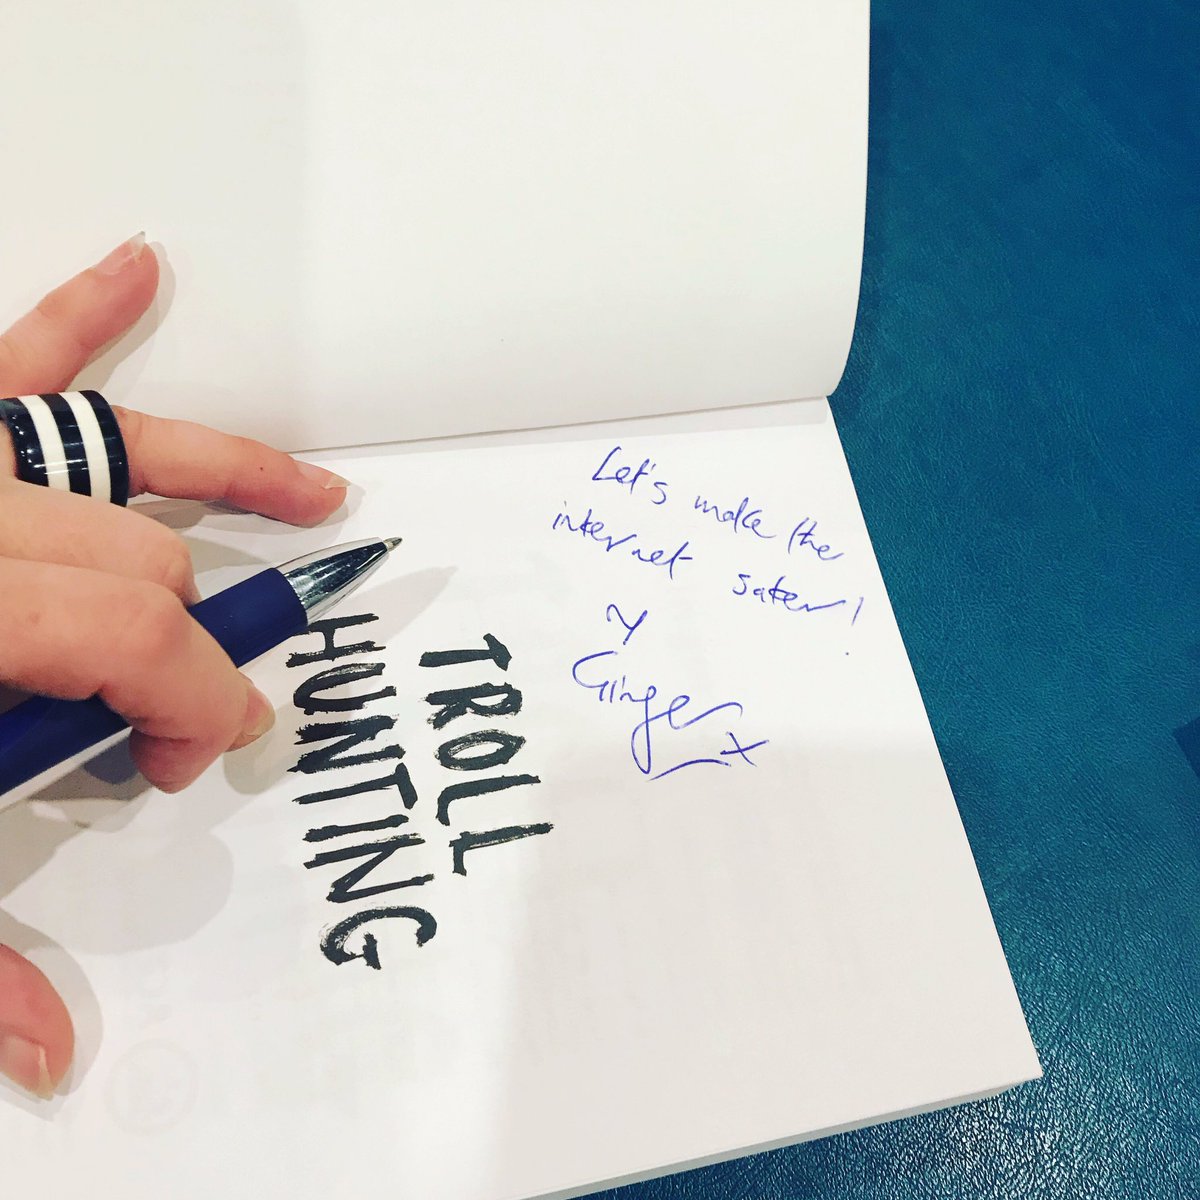 Let's make the
internet safer!
Ginger x
TROLL
HUNTING